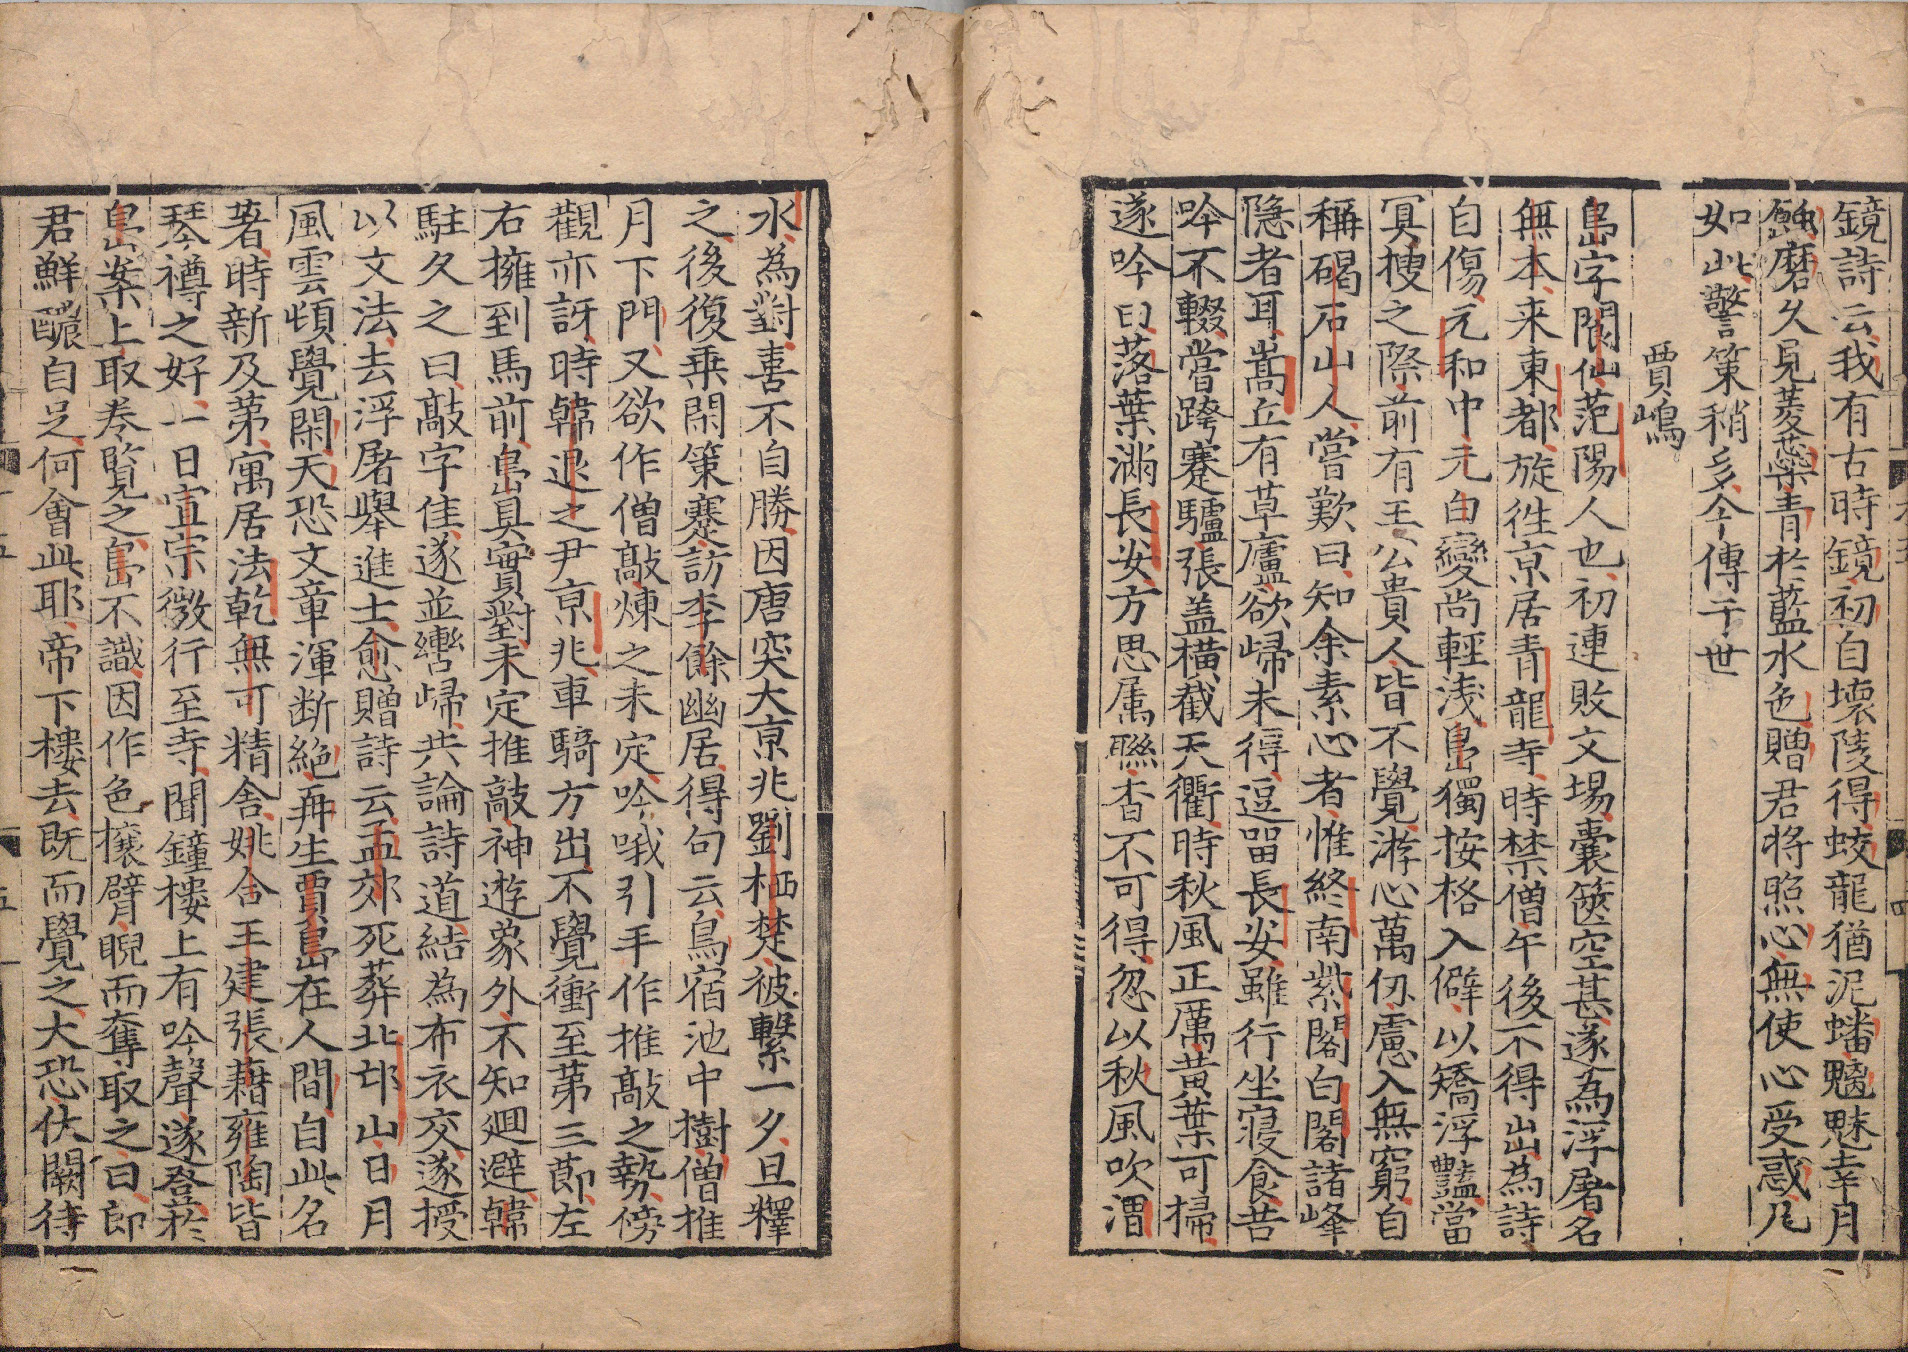 鏡詩云我有古時鏡初自壞陵得蛟龍猶泥蟠魑魅幸月
蝕磨久見菱蘂青於藍水色贈君將照心無使心受惑凡
如此警策稍多今傳于世
賈嶋
島字閬仙范陽人也初連敗文場囊篋空甚遂為浮屠名
無本来東都旋徃京居青龍寺時禁僧午後不得出為詩
自傷元和中元白變尚輕浅島獨按格入僻以矯浮豔當
冥搜之際前有王公貴人皆不覺游心萬仞慮入無窮自
稱碣石山人甞歎曰知余素心者惟終南紫閣白閣諸峰
隐者耳嵩丘有草廬欲歸未得逗留長安雖行坐寢食苦
吟不輟甞跨蹇驢張盖横截天衢時秋風正厲黄葉可掃
遂吟曰落葉滿長安方思属聯杳不可得忽以秋風吹渭
水為對喜不自勝因唐突大京兆劉栖楚被繫一夕旦釋
之後復乗閑策蹇訪李餘幽居得句云鳥宿池中樹僧推
月下門又欲作僧敲煉之未定吟哦引手作推敲之勢傍
觀亦訝時韓退之尹京兆車騎方出不覺衝至第三節左
右擁到馬前島具實對未定推敲神遊象外不知廻避韓
駐久之曰敲字佳遂並轡歸共論詩道結為布衣交遂授
以文法去浮屠舉進士愈贈詩云孟郊死葬北邙山日月
風雲頓覺閑天恐文章渾断絶再生賈島在人間自此名
著時新及第寓居法乾無可精舎姚合王建張藉雍陶皆
琴樽之好一日宣宗微行至寺聞鐘樓上有吟聲遂登於
島案上取卷覧之島不識因作色攘臂睨而奪取之曰郎
君鮮醲自足何會此耶帝下樓去既而覺之大恐伏闕待